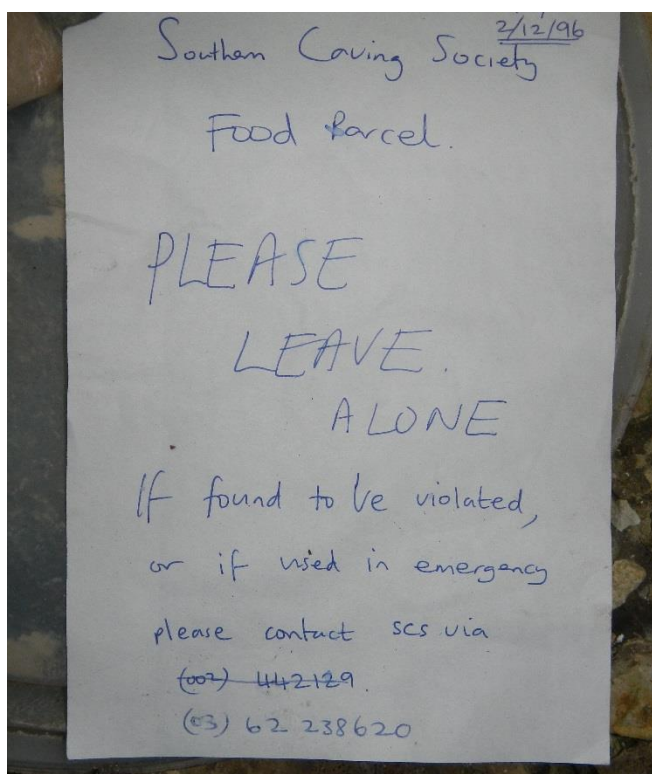 2/12/96
Southern Caving Society
Food Parcel.
PLEASE
LEAVE.
ALONE
If found to be violated,
or if used in emergency
please contact scs via
(002) 442129.
(03) 62 238620